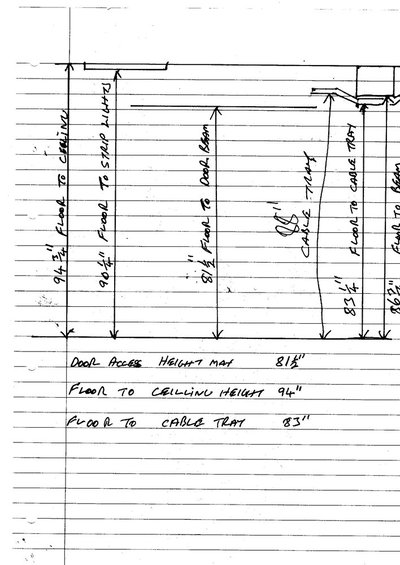 94 3/4" FLOOR TO CEILING
90 1/4" FLOOR TO STRIP LIGHTS
81 1/2" FLOOR TO DOOR BEAM
CABLE TRAY
83 1/4" FLOOR TO CABLE TRAY
FLOOR TO BEAM
DOOR ACCESS HEIGHT MAX 81 1/2"
FLOOR TO CEILLING HEIGHT 94"
FLOOR TO CABLE TRAY 83"